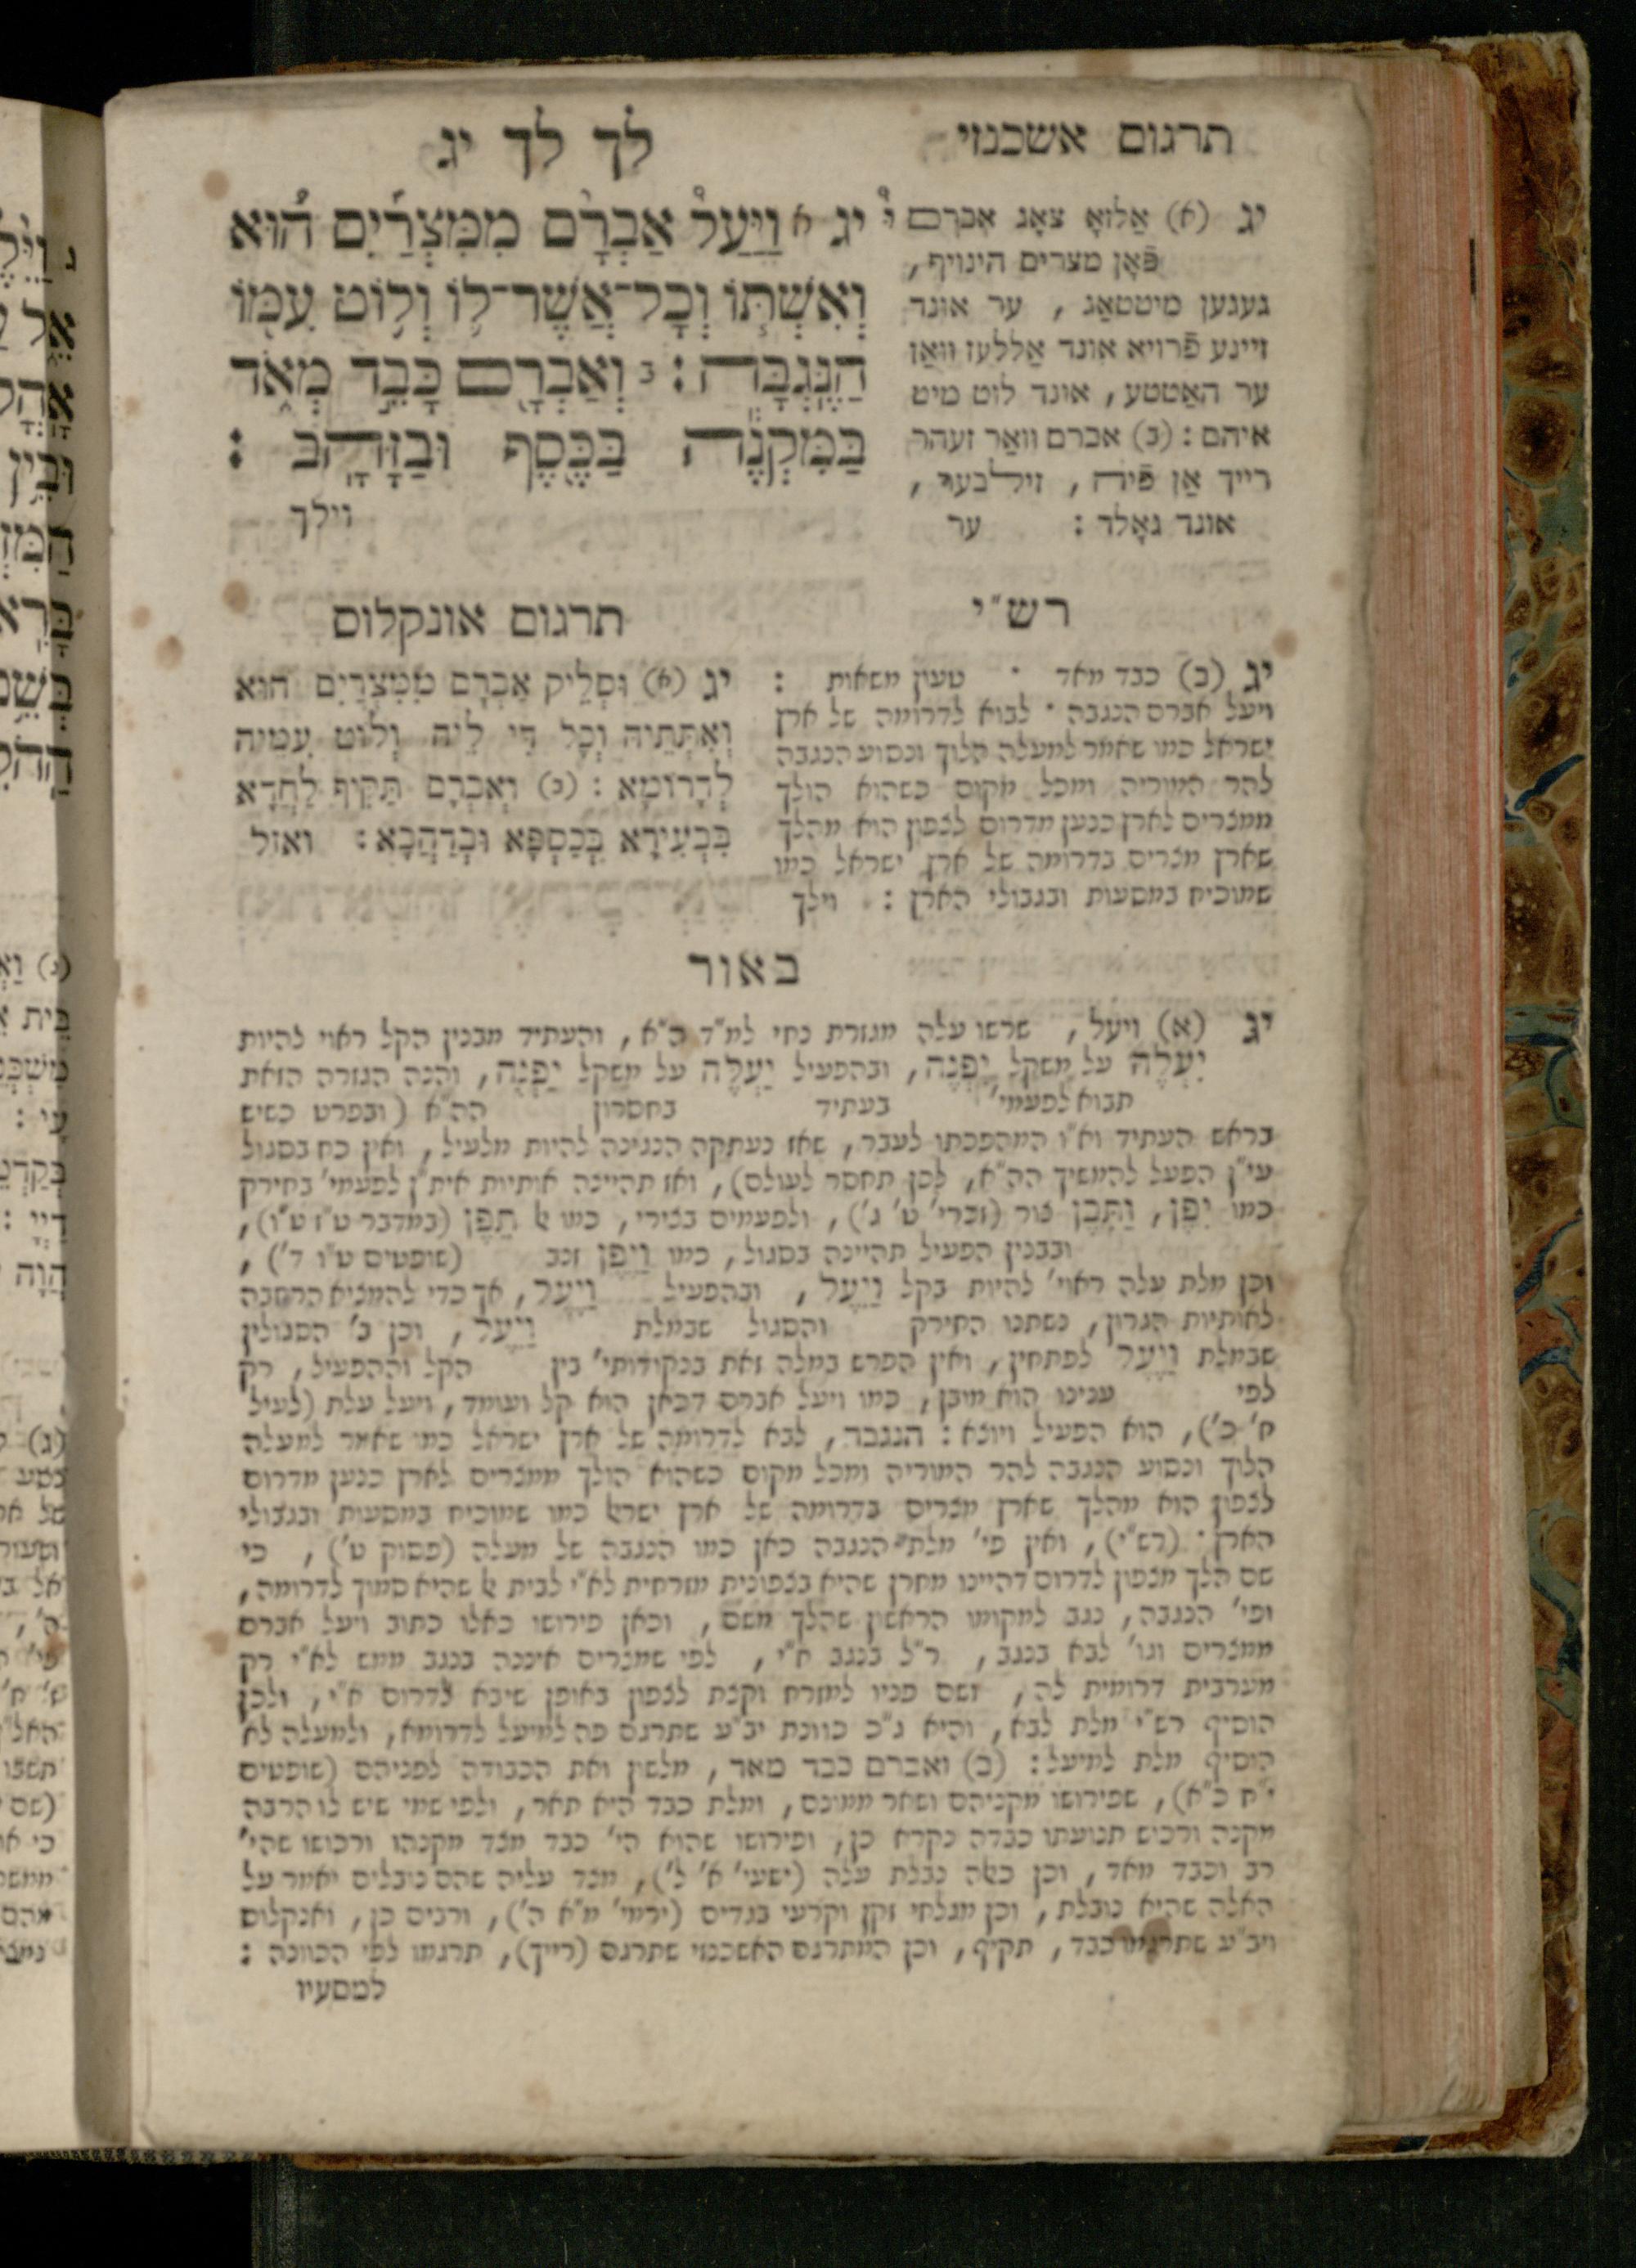 תרגום אשכנזי
לך לך יג
יג (א) אַלזאָ צאָג אברם
פֿאָן מצרים הינויף,
געגען מיטטאַג, ער אונד
זיינע פֿרויא אונד אַללעז וואַז
ער האַטטע, אונד לוט מיט
איהם: (ב) אברם וואַר זעהר
רייך אַן פֿיה, זילבער,
אונד גאָלד: ער
יג א וַיַּעַל אַבְרָם מִמִּצְרַיִם הוּא
וְאִשְׁתּוֹ וְכָל־אֲשֶׁר־לוֹ וְלוֹט עִמּוֹ
הַנֶּגְבָּה: ב וְאַבְרָם כָּבֵד מְאֹד
בַּמִּקְנֶה בַּכֶּסֶף וּבַזָּהָב:
וילך
רש"י
יג (ב) כבד מאד · טעון משאות:
ויעל אברם הנגבה · לבוא לדרומה של ארץ
ישראל כמו שאמר למעלה הלוך ונסוע הנגבה
להר המוריה ומכל מקום כשהוא הולך
ממצרים לארץ כנען מדרום לצפון הוא מהלך
שארץ מצרים בדרומה של ארץ ישראל כמו
שמוכיח במסעות ובגבולי הארץ: וילך
תרגום אונקלוס
יג (א) וּסְלֵיק אַבְרָם מִמִּצְרַיִם הוּא
וְאִתְּתֵיהּ וְכָל דִּי לֵיהּ וְלוֹט עִמֵּיהּ
לְדָרוֹמָא: (ב) וְאַבְרָם תַּקִּיף לַחֲדָא
בִּבְעִירָא בְּכַסְפָּא וּבְדַהֲבָא: ואזל
באור
יג (א) ויעל, שרשו עלה מגזרת נחי למ"ד ה"א, והעתיד מבנין הקל ראוי להיות
יִעְלֶה על משקל יִפְנֶה, ובהפעיל יַעְלֶה על משקל יַפְנֶה, והנה הגזרה הזאת
תבוא לפעמי' בעתיד בחסרון הה"א (ובפרט כשיש
בראש העתיד וא"ו המהפכתו לעבר, שאז נעתקה הנגינה להיות מלעיל, ואין כח בסגול
עי"ן הפעל להמשיך הה"א, לכן תחסר לעולם), ואז תהיינה אותיות אית"ן לפעמי' בחירק
כמו יִפֶן, וַתִּבֶן צור (זכרי' ט' ג'), ולפעמים בצירי, כמו אל תֵּפֶן (במדבר ט"ז ט"ו),
ובבנין הפעיל תהיינה בסגול, כמו וַיֶּפֶן זנב (שופטים ט"ו ד'),
וכן מלת עלה ראוי' להיות בקל וַיִּעֶל, ובהפעיל וַיֶּעֶל, אך כדי להמציא הרחבה
לאותיות הגרון, נשתנו החירק והסגול שבמלת וַיִּעֶל, וכן ב' הסגולין
שבמלת וַיֶּעֶל לפתחין, ואין הפרש במלה זאת בנקודותי' בין הקל וההפעיל, רק
לפי ענינו הוא מובן, כמו ויעל אברם דכאן הוא קל ועומד, ויעל עלת (לעיל
ח' כ'), הוא הפעיל ויוצא: הנגבה, לבא לדרומה של ארץ ישראל כמו שאמר למעלה
הלוך ונסוע הנגבה להר המוריה ומכל מקום כשהוא הולך ממצרים לארץ כנען מדרום
לצפון הוא מהלך שארץ מצרים בדרומה של ארץ ישראל כמו שמוכיח במסעות ובגבולי
הארץ· (רש"י), ואין פי' מלת הנגבה כאן כמו הנגבה של מעלה (פסוק ט'), כי
שם הלך מצפון לדרום דהיינו מחרן שהיא בצפונית מזרחית לא"י לבית אל שהיא סמוך לדרומה,
ופי' הנגבה, נגב למקומו הראשון שהלך משם, וכאן פירושו כאלו כתוב ויעל אברם
ממצרים וגו' לבא בנגב, ר"ל בנגב א"י, לפי שמצרים איננה בנגב ממש לא"י רק
מערבית דרומית לה, ושם פניו למזרח וקצת לצפון באופן שיבא לדרום א"י, ולכן
הוסיף רש"י מלת לבא, והיא ג"כ כוונת יב"ע שתרגם פה למיעל לדרומא, ולמעלה לא
הוסיף מלת למיעל: (ב) ואברם כבד מאד, מלשון ואת הכבודה לפניהם (שופטים
י"ח כ"א), שפירושו מקניהם ושאר ממונם, ומלת כבד היא תאר, ולפי שמי שיש לו הרבה
מקנה ורכוש תנועתו כבדה נקרא כן, ופירושו שהוא הי' כבד מצד מקנהו ורכושו שהי'
רב וכבד מאד, וכן כאלה נבלת עלה (ישעי' א' ל'), מצד עליה שהם נובלים יאמר על
האלה שהיא נובלת, וכן מגלחי זקן וקרעי בגדים (ירמי' מ"א ה'), ורבים כן, ואנקלוס
ויב"ע שתרגמו כבד, תקיף, וכן המתרגם האשכנזי שתרגם (רייך), תרגמו לפי הכוונה:
למסעיו